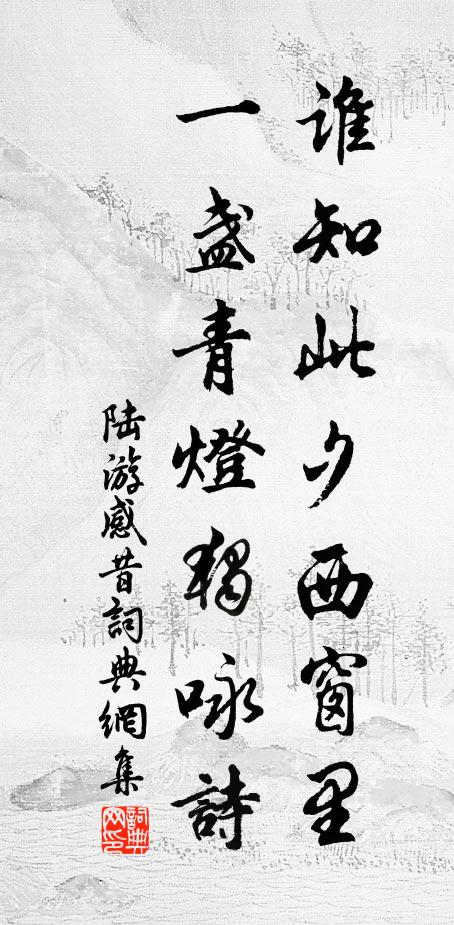 誰知此夕西窗里
一盞青燈獨咏詩
陸游感昔詞典網集
詞典
网印